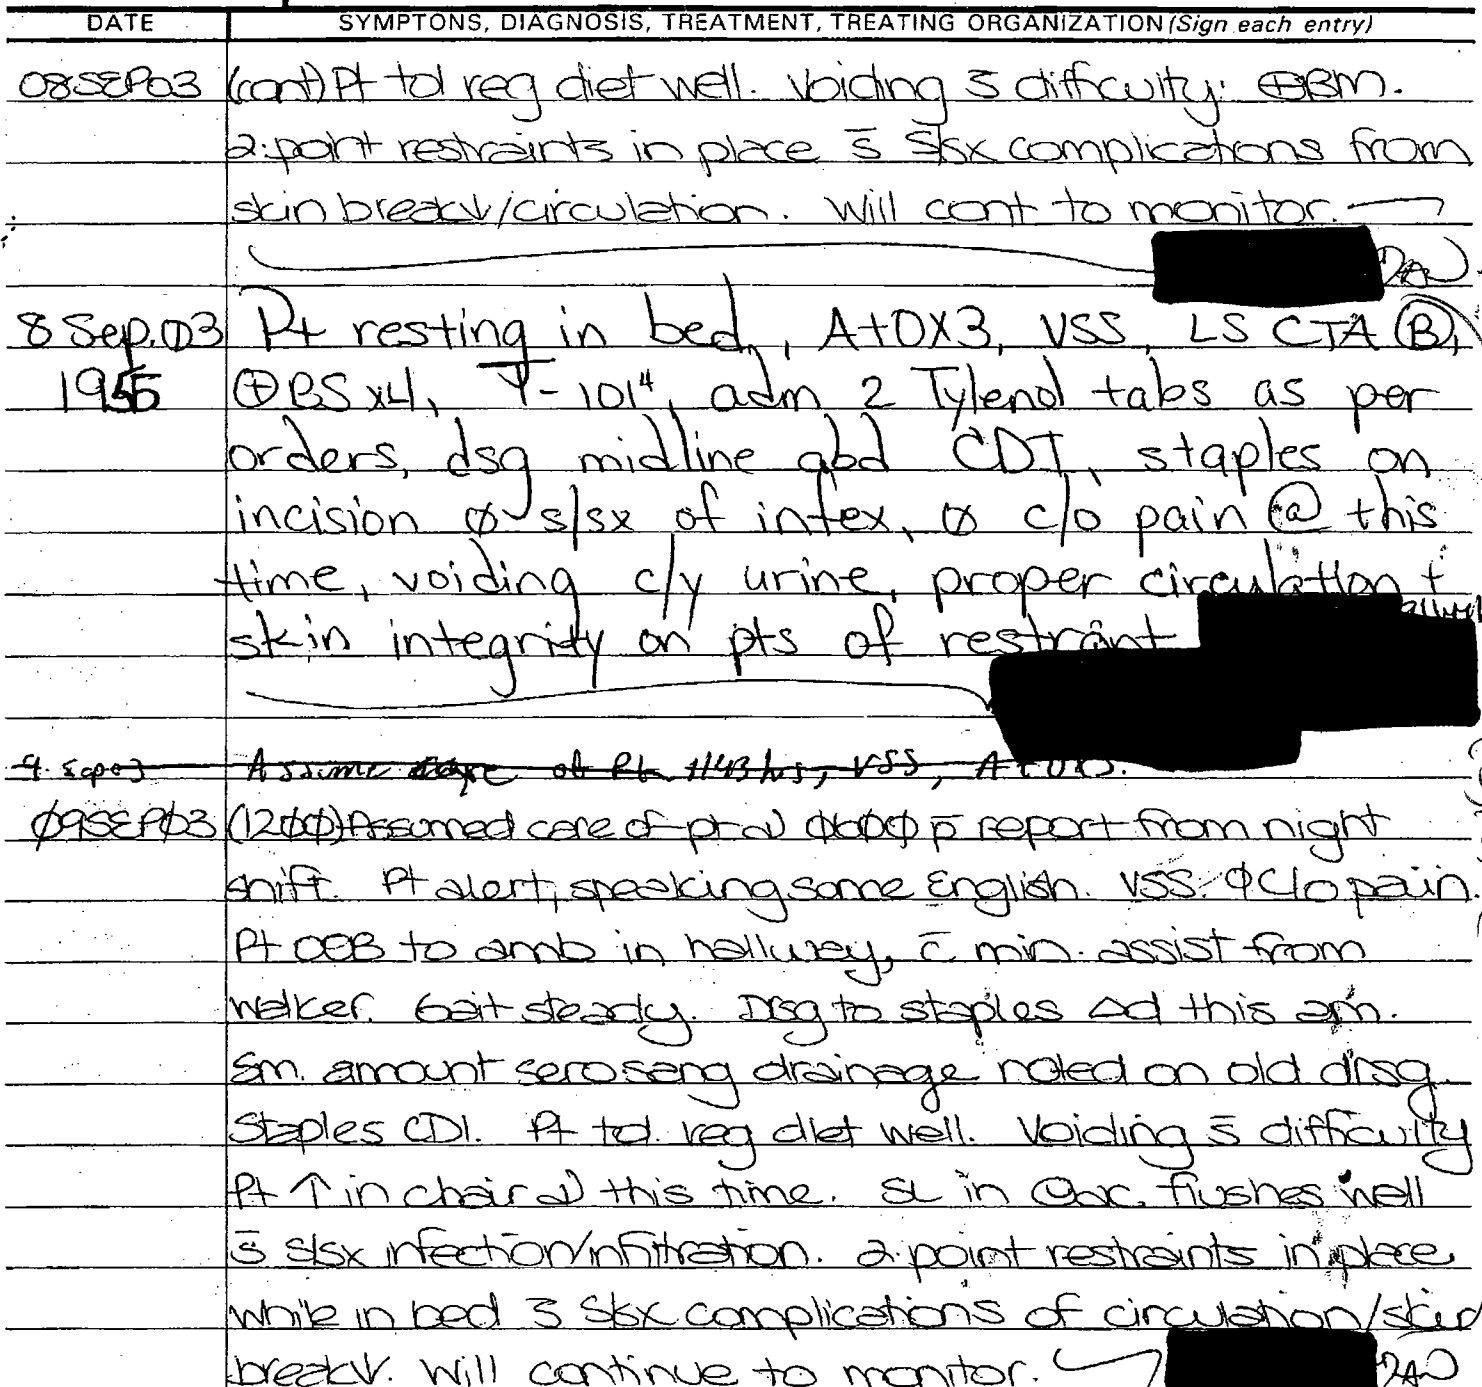 DATE SYMPTONS, DIAGNOSIS, TREATMENT, TREATING ORGANIZATION (Sign each entry)
08SEP03 (cont) Pt tol reg diet well. Voiding s̄ difficulty. ⊕BM.
2-point restraints in place s̄ S/sx complications from
skin break↓/circulation. Will cont to monitor.
8 Sep 03 Pt resting in bed, A+OX3, VSS, LS CTA Ⓑ,
1955 ⊕BS x4, T-101⁴, adm 2 Tylenol tabs as per
orders, dsg midline abd CDI, staples on
incision ∅ s/sx of infex, ∅ c/o pain @ this
time, voiding c/y urine, proper circulation +
skin integrity on pts of restraint
9 Sep 03 Assume care of Pt 1143 hrs, VSS, A+OX3.
09SEP03 (1200) Assumed care of pt @ 0600 p̄ report from night
shift. Pt alert, speaking some English. VSS. ∅ C/o pain.
Pt OOB to amb in hallway, c̄ min. assist from
walker. Gait steady. Drsg to staples Δd this am.
Sm. amount serosang drainage noted on old drsg.
Staples CDI. Pt tol. reg diet well. Voiding s̄ difficulty
Pt ↑ in chair @ this time. SL in ac. flushes well
s̄ S/sx infection/infiltration. 2-point restraints in place
while in bed s̄ S/sx complications of circulation/skin
break↓. Will continue to monitor.